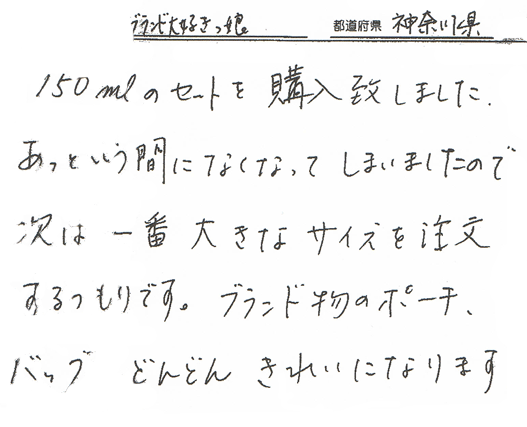 ブランド大好きっ娘 都道府県 神奈川県
150mlのセットを購入致しました.
あっという間になくなってしまいましたので
次は一番大きなサイズを注文
するつもりです。ブランド物のポーチ、
バッグ どんどんきれいになります